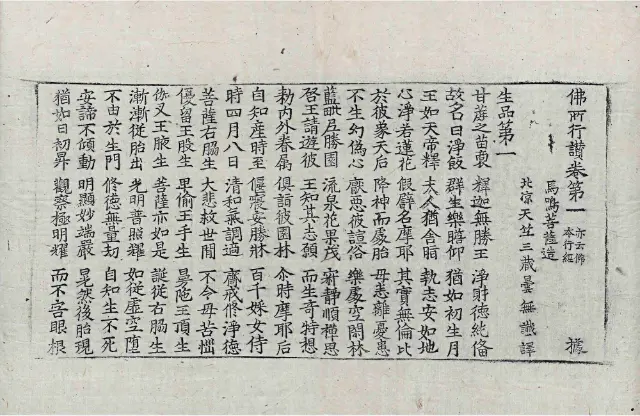 佛所行讚卷第一 亦云佛本行經 據
馬鳴菩薩造
北涼天竺三藏曇無讖譯
生品第一
甘蔗之苗裔 釋迦無勝王 淨財德純備
故名曰淨飯 群生樂瞻仰 猶如初生月
王如天帝釋 夫人猶舍脂 執志安如地
心淨若蓮花 假譬名摩耶 其實無倫比
於彼象天后 降神而處胎 母悉離憂患
不生幻偽心 厭惡彼諠俗 樂處空閑林
藍毗尼勝園 流泉花果茂 寂靜順禪思
啓王請遊彼 王知其志願 而生奇特想
勅內外眷屬 俱詣彼園林 尒時摩耶后
自知產時至 偃寢安勝牀 百千婇女侍
時四月八日 清和氣調適 齋戒修淨德
菩薩右脇生 大悲救世間 不令母苦惱
優留王股生 畀偷王手生 曼陁王頂生
伽叉王腋生 菩薩亦如是 誕從右脇生
漸漸從胎出 光明普照耀 如從虛空墮
不由於生門 修德無量劫 自知生不死
安諦不傾動 明顯妙端嚴 晃然後胎現
猶如日初昇 觀察極明耀 而不害眼根